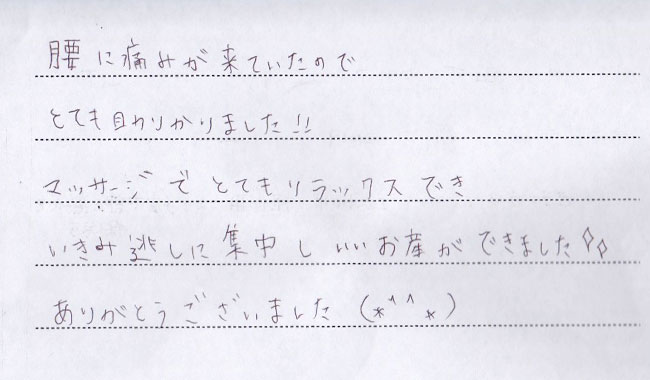 腰に痛みが来ていたので
とても助かりました!!
マッサージでとてもリラックスでき
いきみ逃しに集中しいいお産ができました✧✧
ありがとうございました (*^^*)